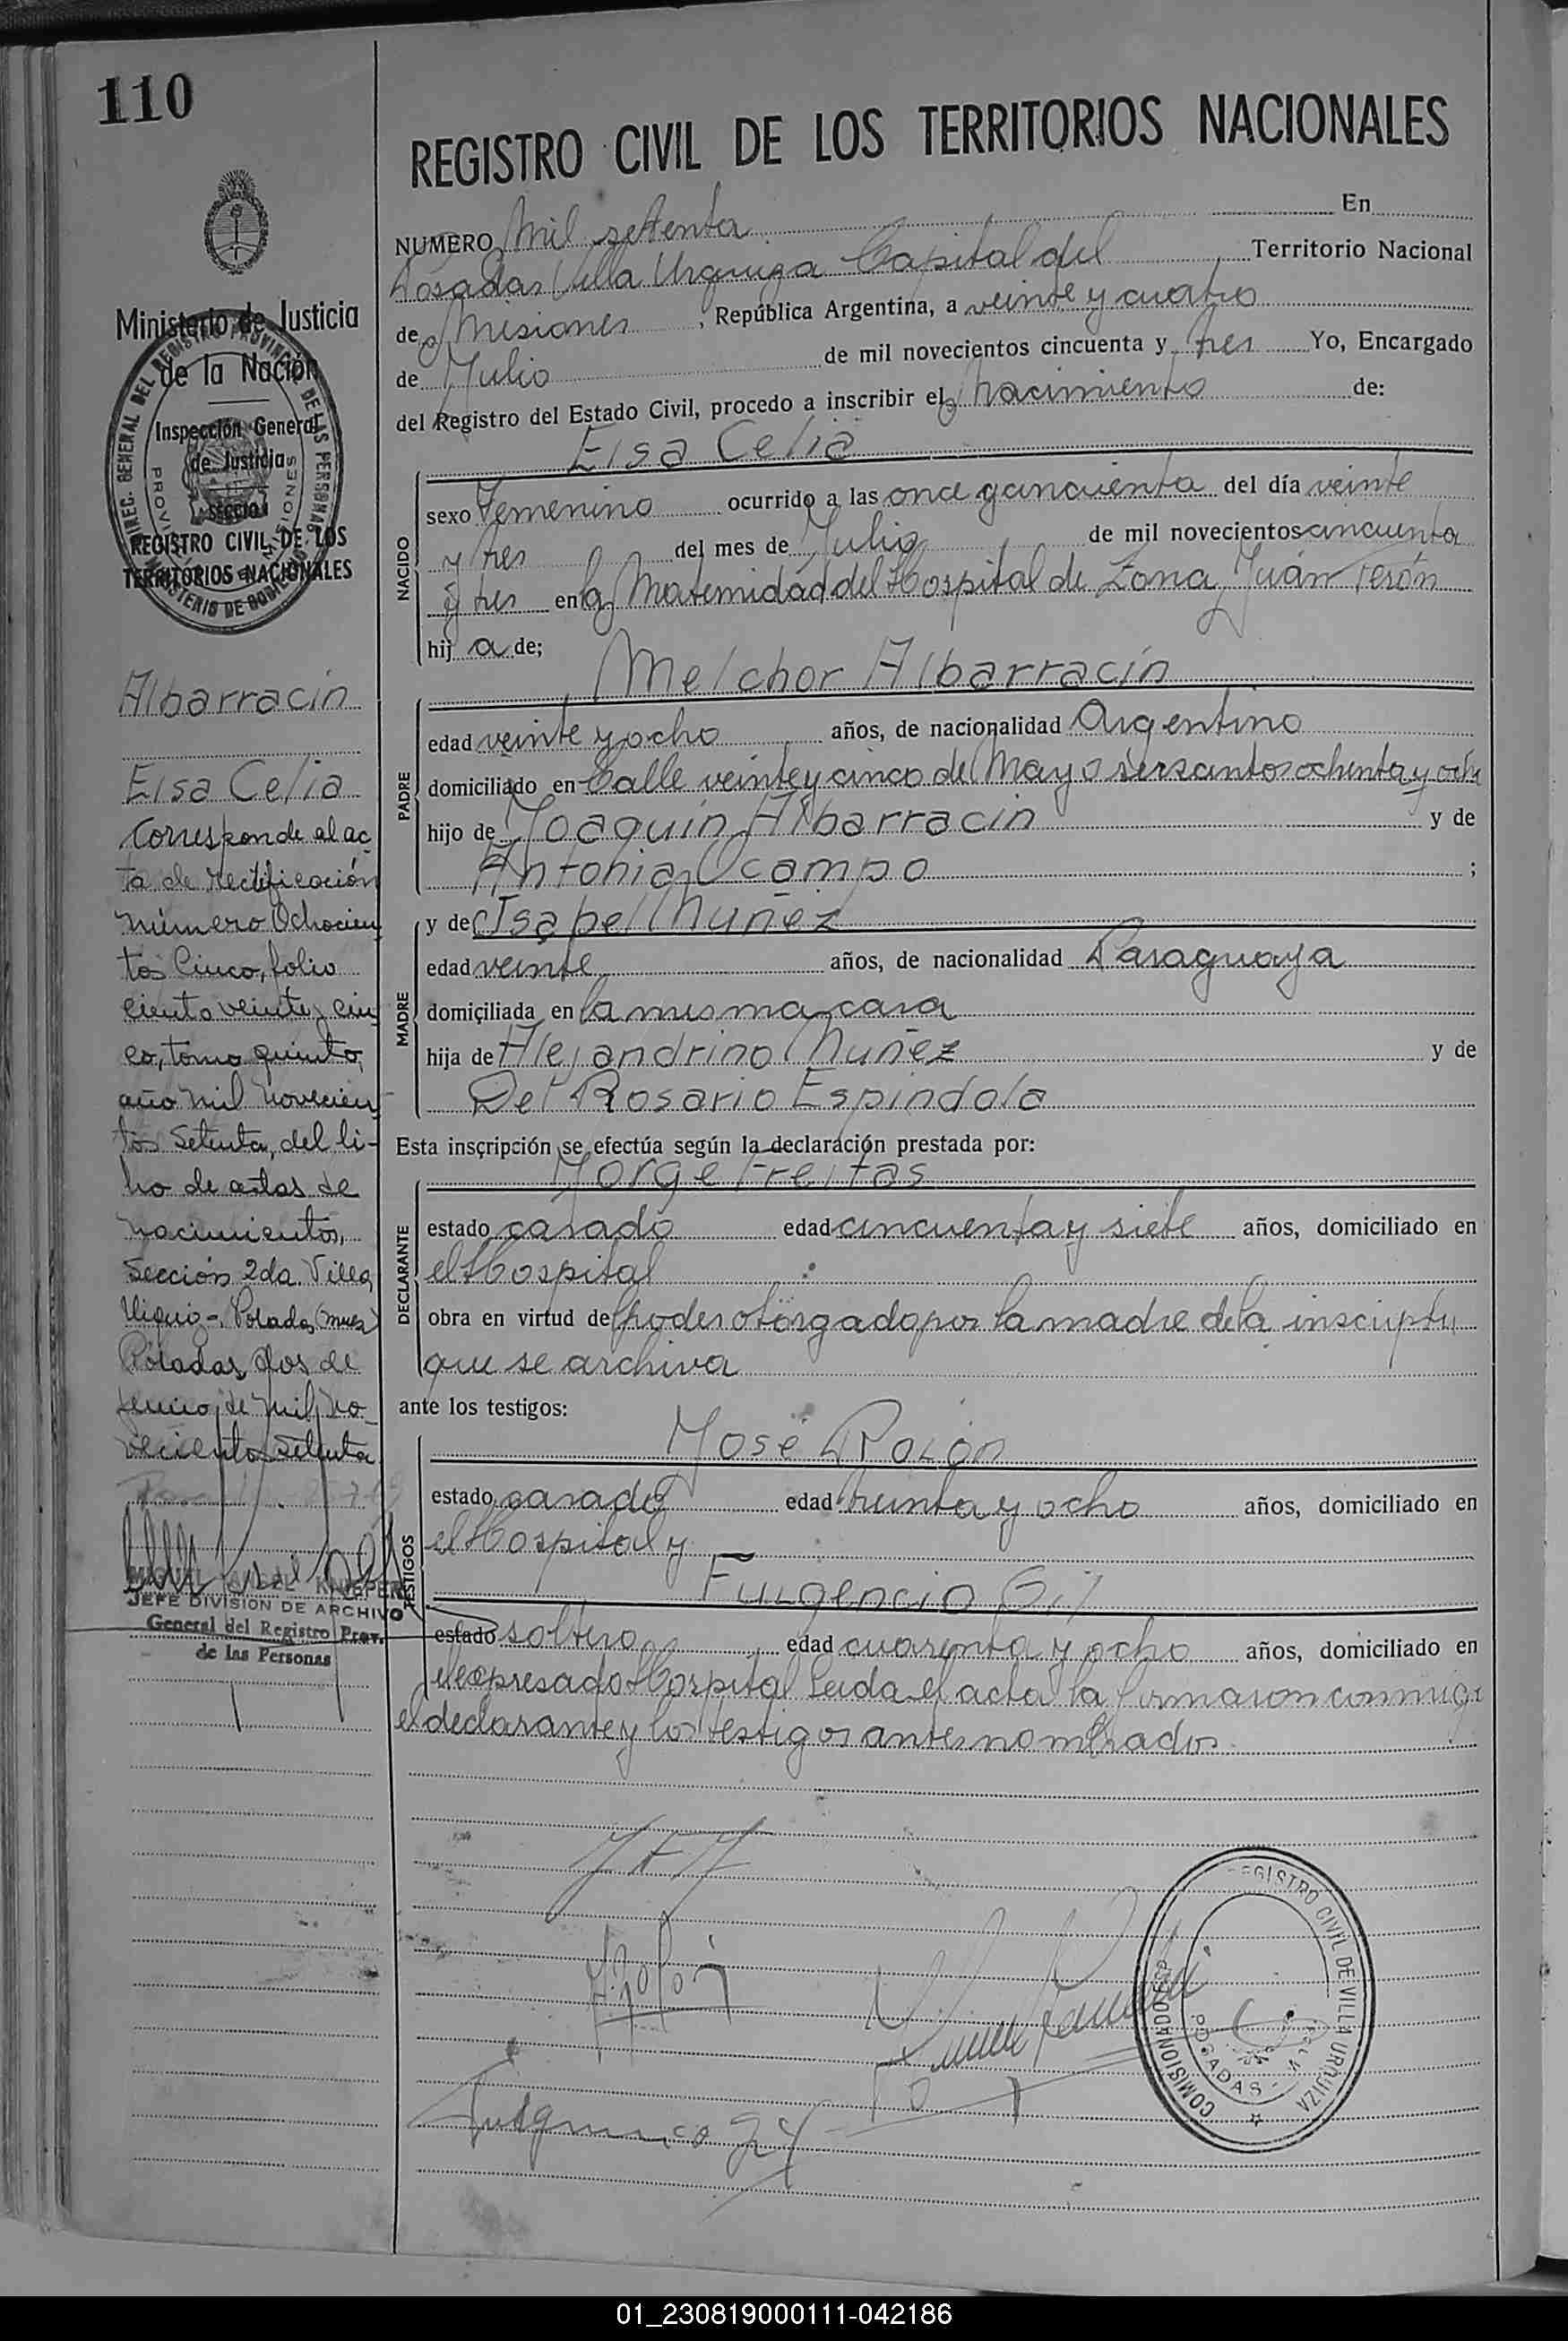 110
REGISTRO CIVIL DE LOS TERRITORIOS NACIONALES
NUMERO Mil setenta En
Posadas Villa Urquiza Capital del Territorio Nacional
de Misiones, República Argentina, a veinte y cuatro
de Julio de mil novecientos cincuenta y tres Yo, Encargado
del Registro del Estado Civil, procedo a inscribir el nacimiento de:
Elsa Celia
NACIDO
sexo Femenino ocurrido a las once y cincuenta del día veinte
y tres del mes de Julio de mil novecientos cincuenta
y tres en la Maternidad del Hospital de Zona Juán Perón
hij a de;
Melchor Albarracín
PADRE
edad veinte y ocho años, de nacionalidad Argentino
domiciliado en Calle veinte y cinco de Mayo ochenta y
hijo de Joaquín Albarracin y de
Antonia Ocampo ;
MADRE
y de Isabel Nuñez
edad veinte años, de nacionalidad Paraguaya
domiciliada en la misma casa
hija de Alejandrino Nuñez y de
Del Rosario Espindola
Esta inscripción se efectúa según la declaración prestada por:
Jorge Freitas
DECLARANTE
estado casado edad cincuenta y siete años, domiciliado en
el Hospital
obra en virtud de Poder otorgado por la madre de la
que se archiva
ante los testigos:
José Rolón
TESTIGOS
estado casado edad treinta y ocho años, domiciliado en
el Hospital y
Fulgencio Gil
estado soltero edad cuarenta y ocho años, domiciliado en
el expresado Hospital Leida el acta la firmaron conmigo
el declarante y los testigos antes nombrados
Ministerio de Justicia
de la Nación
Inspección General
de Justicia
REGISTRO CIVIL DE LOS
TERRITORIOS NACIONALES
Albarracín
Elsa Celia
Corresponde al ac
ta de rectificación
número Ochocien
tos Cinco, folio
ciento veinte y cin
co, tomo quinto,
año mil novecien
tos Setenta, del li-
bro de actas de
nacimientos,
Sección 2da. Villa
Posadas
Posadas, dos de
de mil no-
vecientos setenta
MIGUEL ANGEL
JEFE DIVISION DE ARCHIVO
General del Registro Prov.
de las Personas
REGISTRO CIVIL DE VILLA URQUIZA
POSADAS
COMISIONADO
01_230819000111-042186